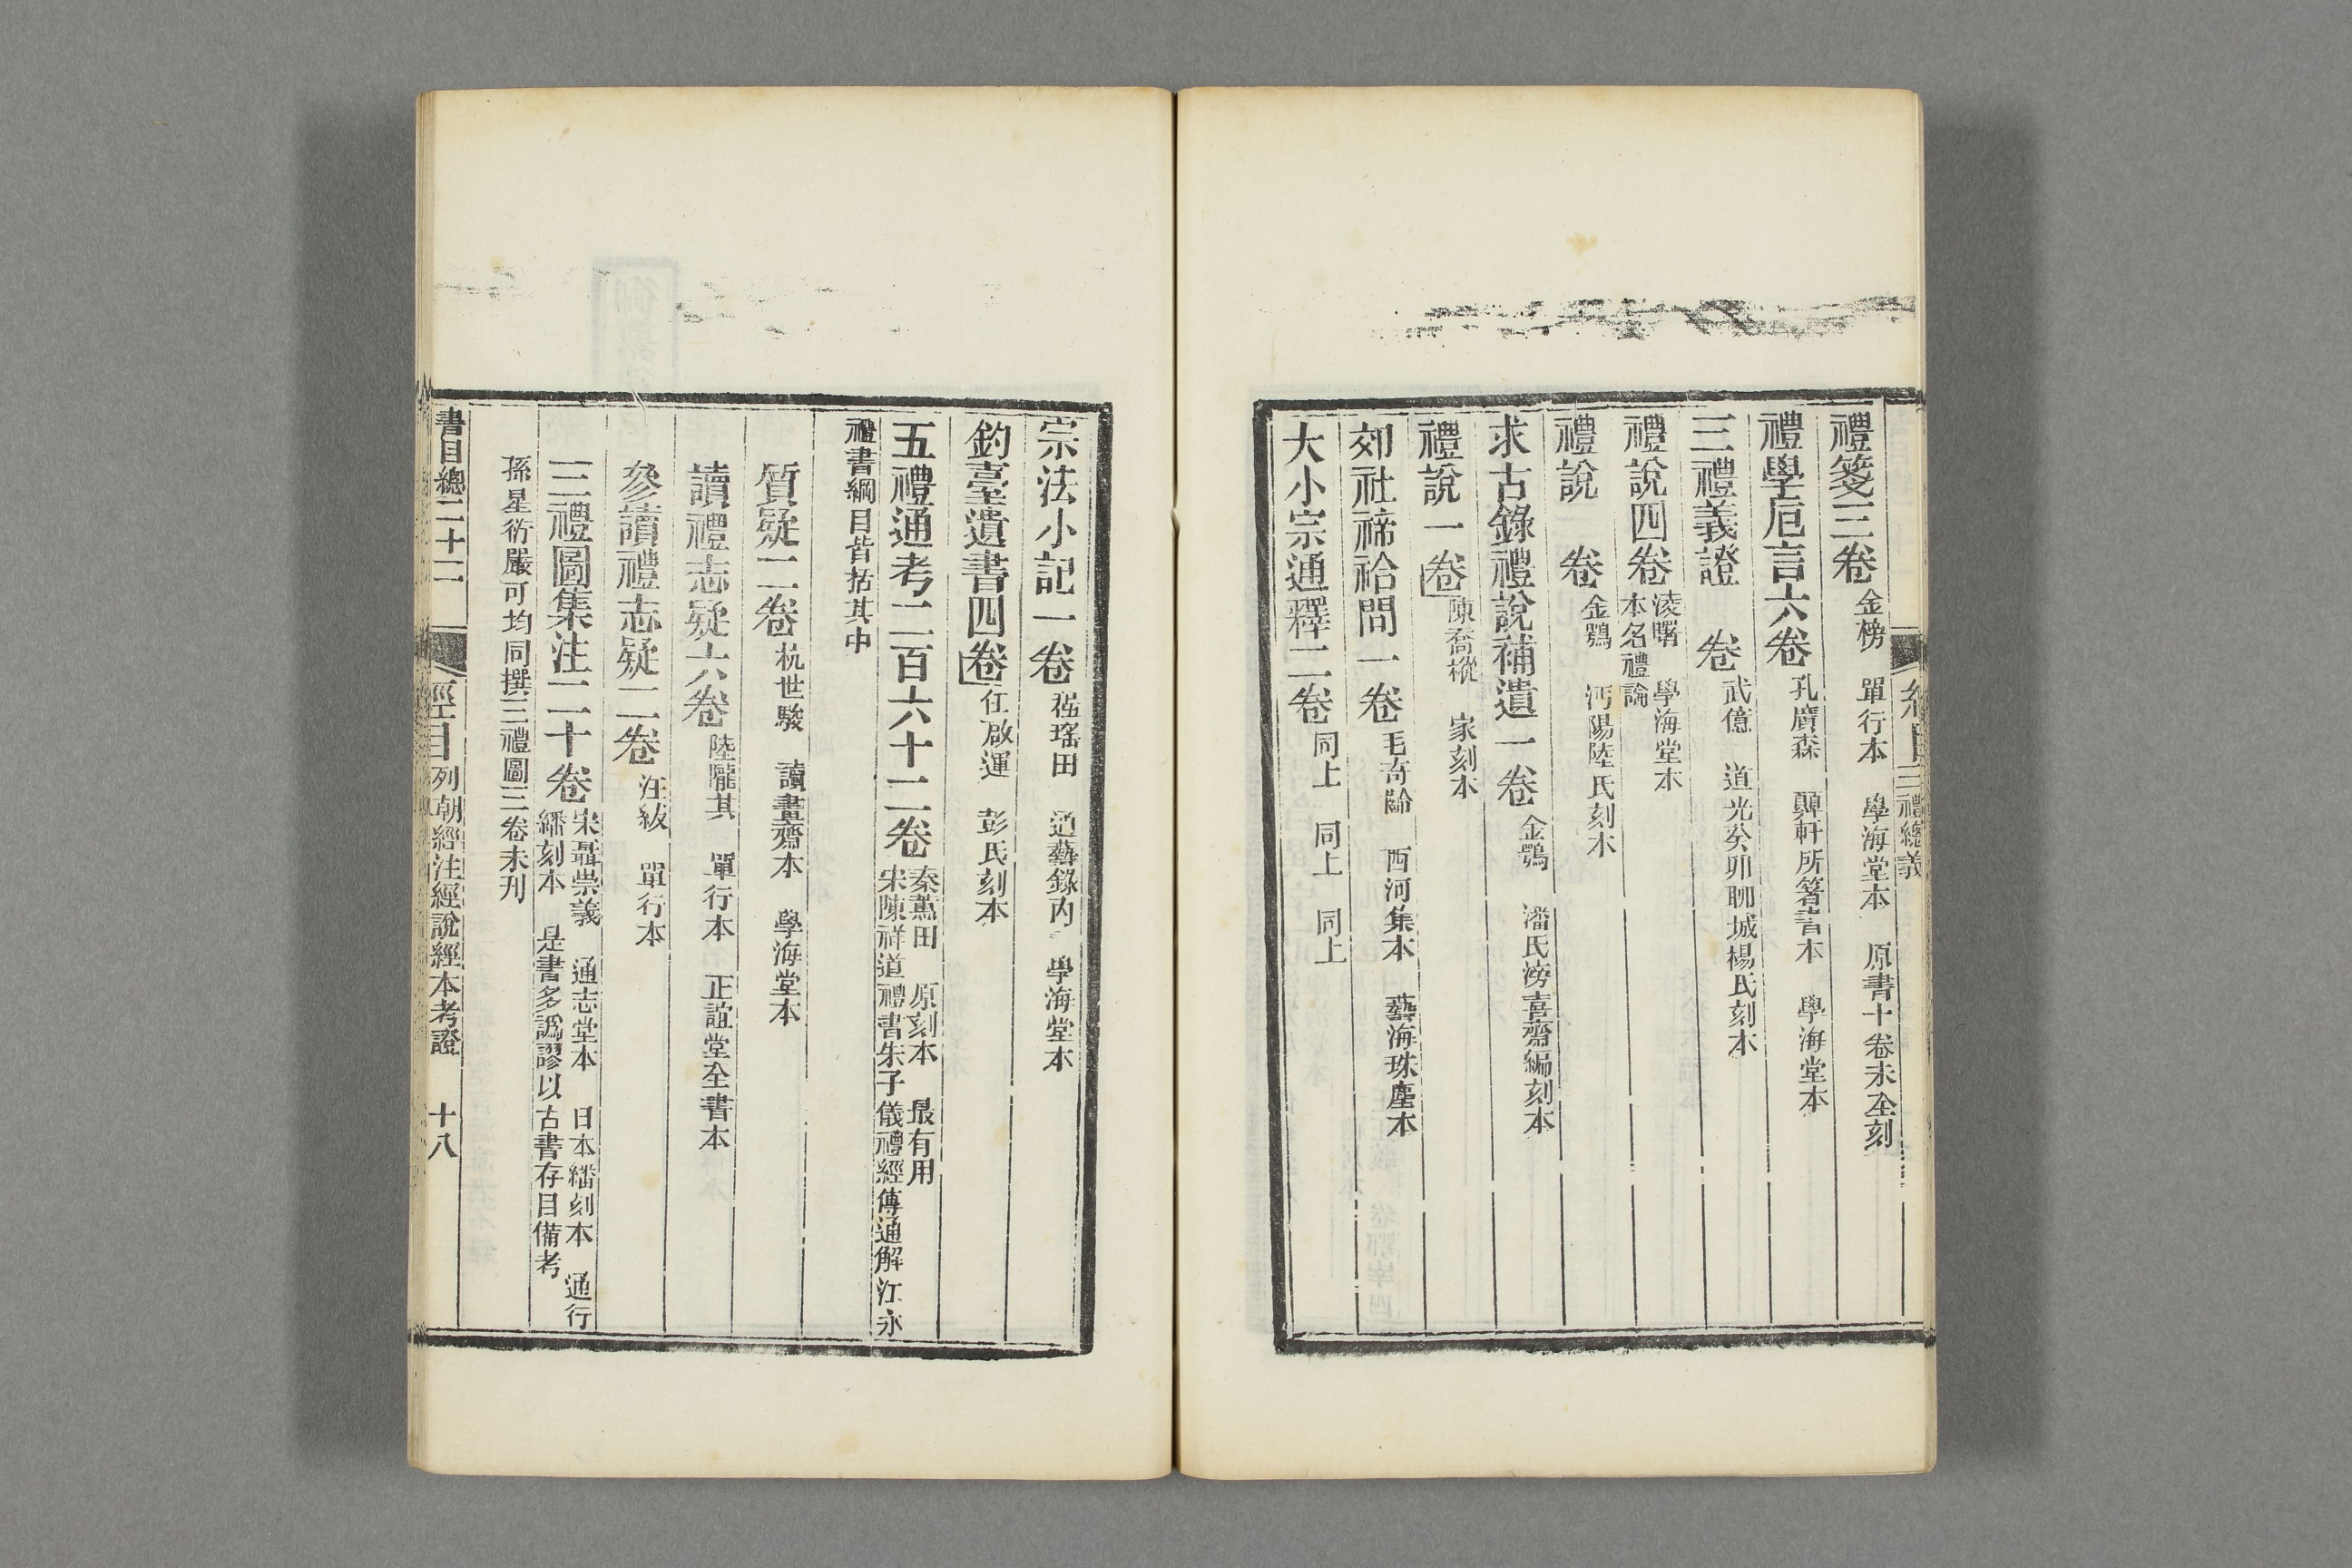 禮箋三卷 金榜 單行本 學海堂本 原書十卷未全刻
禮學卮言六卷 孔廣森 顨軒所箸書本 學海堂本
三禮義證 卷 武億 道光癸卯聊城楊氏刻本
禮說四卷 淩曙 學海堂本
本名禮論
禮說 卷 金鶚 沔陽陸氏刻本
求古錄禮說補遺一卷 金鶚 潘氏滂喜齋編刻本
禮說一卷 陳喬樅 家刻本
郊社禘祫問一卷 毛奇齡 西河集本 藝海珠塵本
大小宗通釋二卷 同上 同上 同上
宗法小記一卷 程瑤田 通藝錄內 學海堂本
釣臺遺書四卷 任啟運 彭氏刻本
五禮通考二百六十二卷 秦蕙田 原刻本 最有用
宋陳祥道禮書朱子儀禮經傳通解江永
禮書綱目皆括其中
質疑二卷 杭世駿 讀畫齋本 學海堂本
讀禮志疑六卷 陸隴其 單行本 正誼堂全書本
參讀禮志疑二卷 汪紱 單行本
三禮圖集注二十卷 宋聶崇義 通志堂本 日本繙刻本 通行
繙刻本 是書多譌謬以古書存目備考
孫星衍嚴可均同撰三禮圖三卷未刊
書目總二十二 經目 列朝經注經說經本考證 十八